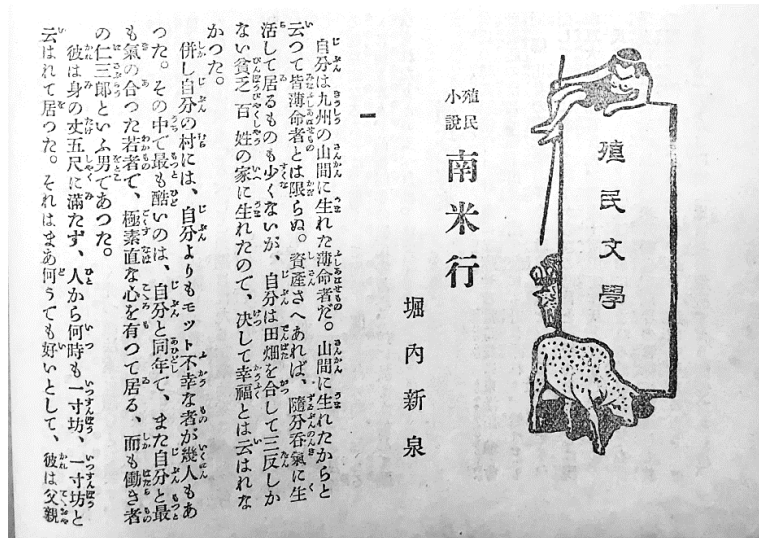 殖民文學
殖民
小說
南米行
堀內新泉
一
自分は九州の山間に生れた薄命者だ。山間に生れたからと
云つて皆薄命者とは限らぬ。資產さへあれば、隨分吞氣に生
活して居るものも少くないが、自分は田畑を合して三反しか
ない貧乏百姓の家に生れたので、決して幸福とは云はれな
かつた。
併し自分の村には、自分よりもモツト不幸な者が幾人もあ
つた。その中で最も酷いのは、自分と同年で、また自分と最
も氣の合つた若者で、極素直な心を有つて居る、而も働き者
の仁三郎といふ男であつた。
彼は身の丈五尺に滿たず、人から何時も一寸坊、一寸坊と
云はれて居つた。それはまあ何うでも好いとして、彼は父親